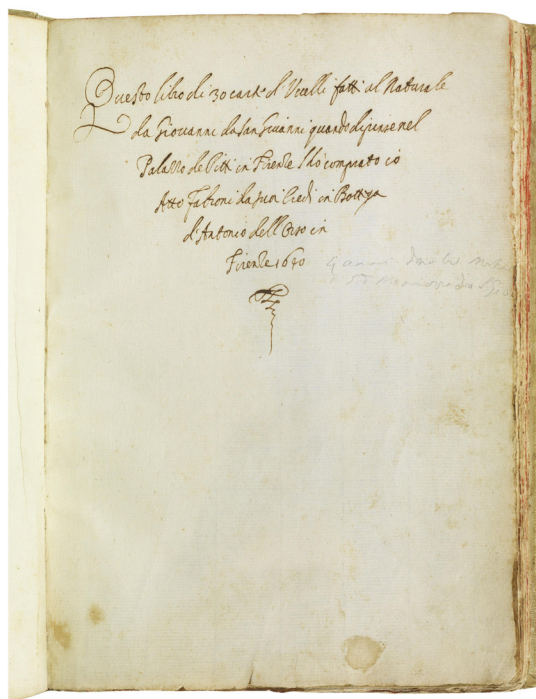 Questo libro di 30 carte d'Vcelli fatti al Naturale
da Giovanni da San Giuanni quando dipinse nel
Palazzo de Pitti in Firenze l'hò comprato io
Atto Fabroni da suoi Credi in Bottega
d'Antonio dell'Orso in
Firenze 1650